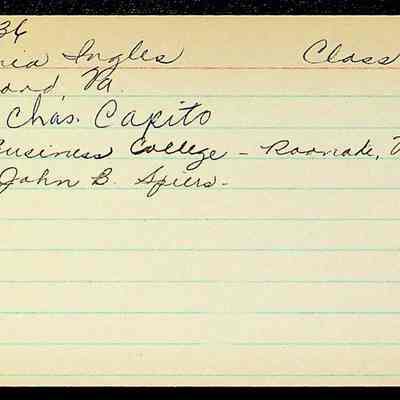 36
nia Ingles Class
ford, Va.
Chas. Capito
Business College - Roanoke, V
John B. Spiers.